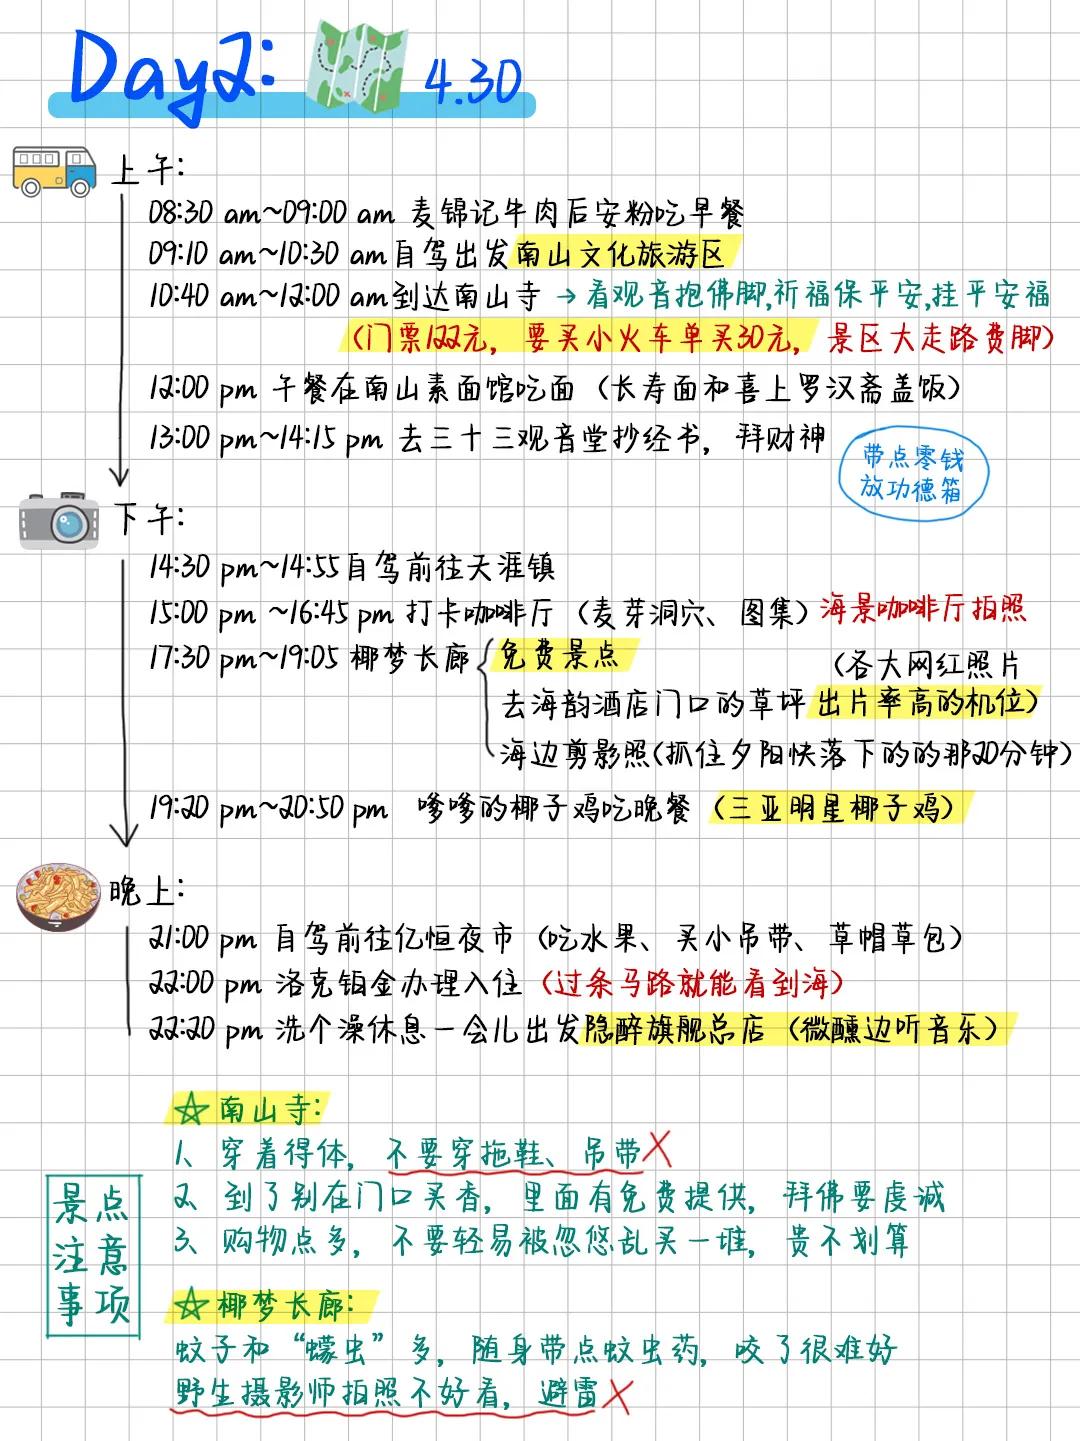 Day2: 4.30
上午:
08:30 am~09:00 am 麦锦记牛肉后安粉吃早餐
09:10 am~10:30 am自驾出发南山文化旅游区
10:40 am~12:00 am到达南山寺 → 看观音抱佛脚,祈福保平安,挂平安福
(门票122元, 要买小火车单买30元, 景区大走路费脚)
12:00 pm 午餐在南山素面馆吃面 (长寿面和喜上罗汉斋盖饭)
13:00 pm~14:15 pm 去三十三观音堂抄经书, 拜财神
带点零钱
放功德箱
下午:
14:30 pm~14:55自驾前往天涯镇
15:00 pm ~16:45 pm 打卡咖啡厅 (麦芽洞穴、图集) 海景咖啡厅拍照
17:30 pm~19:05 椰梦长廊 免费景点
(各大网红照片
去海韵酒店门口的草坪 出片率高的机位)
海边剪影照(抓住夕阳快落下的的那20分钟)
19:20 pm~20:50 pm 嗲嗲的椰子鸡吃晚餐 (三亚明星椰子鸡)
晚上:
21:00 pm 自驾前往亿恒夜市 (吃水果、买小吊带、草帽草包)
22:00 pm 洛克铂金办理入住 (过条马路就能看到海)
22:20 pm 洗个澡休息一会儿出发隐醉旗舰总店 (微醺边听音乐)
景点
注意
事项
☆南山寺:
1、穿着得体, 不要穿拖鞋、吊带X
2、到了别在门口买香, 里面有免费提供, 拜佛要虔诚
3、购物点多, 不要轻易被忽悠乱买一堆, 贵不划算
☆椰梦长廊:
蚊子和“蠓虫”多, 随身带点蚊虫药, 咬了很难好
野生摄影师拍照不好看, 避雷X